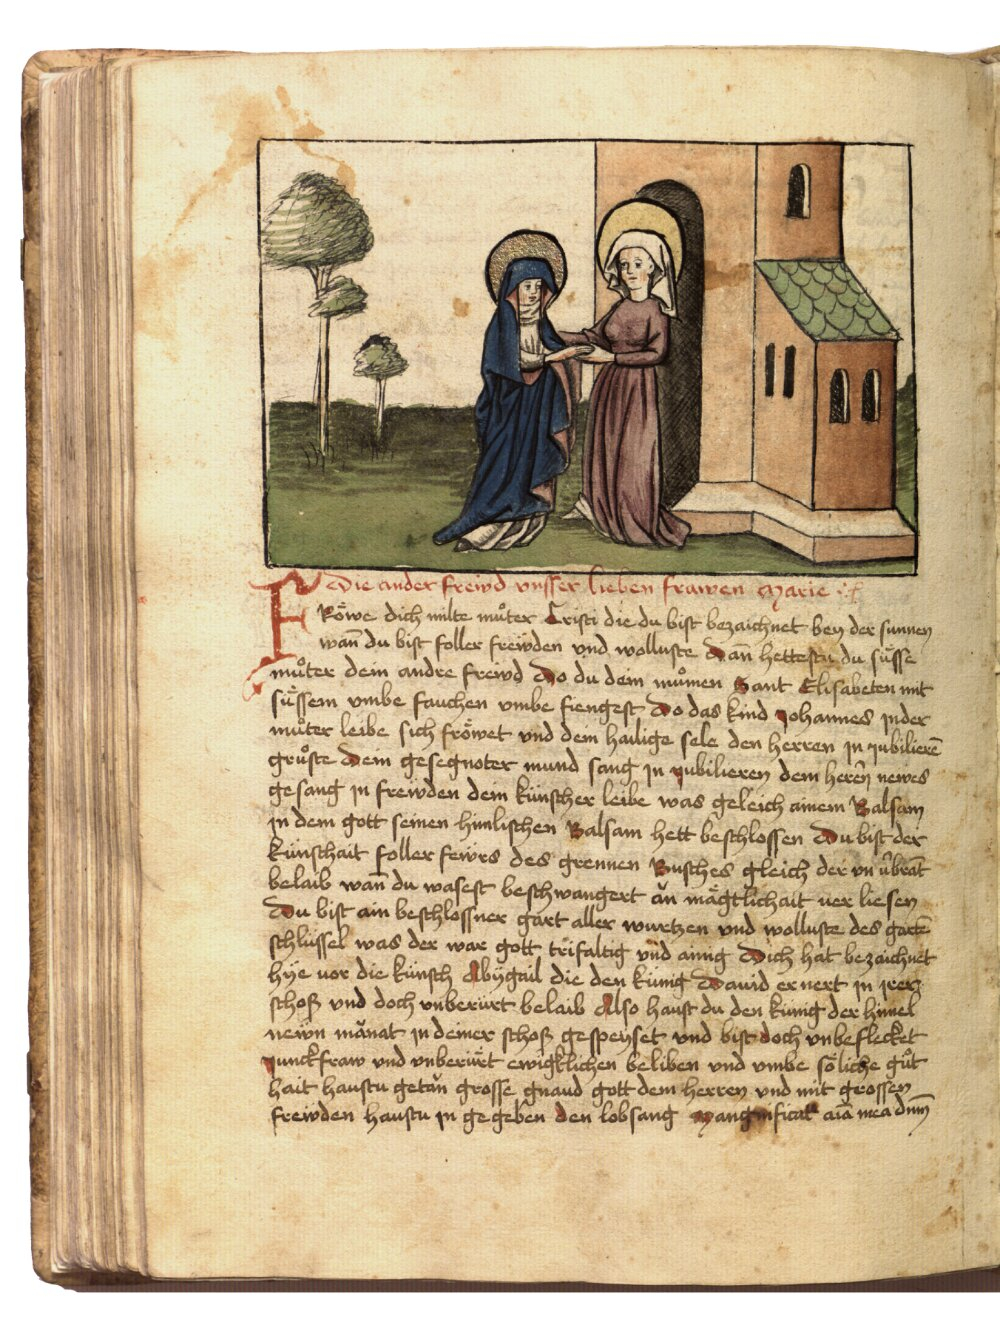 Die ander frewd vnsser lieben frawen Marie
FRöwe dich milte můter Cristi die du bist bezaichnet bey der sunnen
wan̄ du bist foller frewden vnd wolluste Dan̄ hettestu du sůsse
můter dein andre frewd Do du dein můmen Sant Elisabeten mit
sůssem vmbe fauchen vmbe fiengest Do das kind Johannes jn der
můter leibe sich fröwet vnd dem hailige sele den herren jn jubiliere͂
grůste Dein gesegnoter mund sang jn jubilieren dem herēn newes
gesang jn frewden dem künscher leibe was geleich ainem Balsam
jn dem gott seinen himlischen Balsam hett beschlossen Du bist der
künschait foller fewrs des grennen Busches gleich der vn v̊brāt
belaib wan̄ du wasest beschwangert ǎn mägtlichait uer liesen
Du bist ain beschlossner gart aller wurtzen vnd wolluste des garte͂
schlüssel was der war gott trifaltig vnd ainig Dich hat bezaichnet
hÿe vor die künsch Abÿgail die den künig Dauid er nert in jrer
schoß vnd doch vnberürt belaib Also haust du den künig der himel
newn mǎnat jn deiner schoß gespeyset vnd bist doch vnbeflecket
junckfraw vnd vnberürt ewigklichen beliben vnd vmbe söliche gůt
hait haustu getǎn grosse gnaud gott dem herren vnd mit grossen
frewden haustu jn gegeben den lobsang Mangnificat aīa mea dnm̄